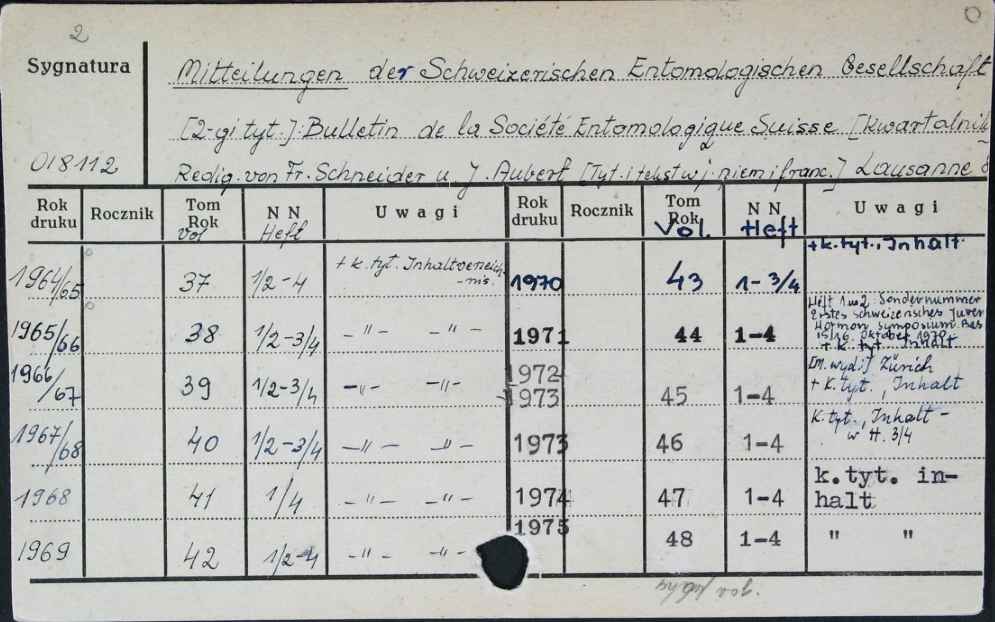 2
Sygnatura
018112
Mitteilungen der Schweizerischen Entomologischen Gesellschaft
[2-gi tyt.]: Bulletin de la Société Entomologique Suisse [Kwartalnik
Redig. von Fr. Schneider u. J. Aubert [Tyt. i tekst w j. niem i franc.] Lausanne
Rok druku Rocznik Tom Rok Vol N N Heft Uwagi Rok druku Rocznik Tom Rok Vol. N N Heft Uwagi
1964/65 37 1/2-4 + k. tyt. Inhaltverzeichnis. 1970 43 1-3/4 + k. tyt., Inhalt.
1965/66 38 1/2-3/4 -"- -"- 1971 44 1-4 Heft 1 u 2: Sondernummer
Erstes Schweizerisches Juven
Hormon Symposium Bas
15/16. Oktober 1970
+ k. tyt. Inhalt.
1966/67 39 1/2-3/4 -"- -"- 1972-1973 45 1-4 [M. wyd:] Zürich
+ K. tyt., Inhalt
1967/68 40 1/2-3/4 -"- -"- 1973 46 1-4 K. tyt., Inhalt -
w H. 3/4
1968 41 1/4 -"- -"- 1974 47 1-4 k.tyt. in-
halt
1969 42 1/2-4 -"- -"- 1975 48 1-4 " "